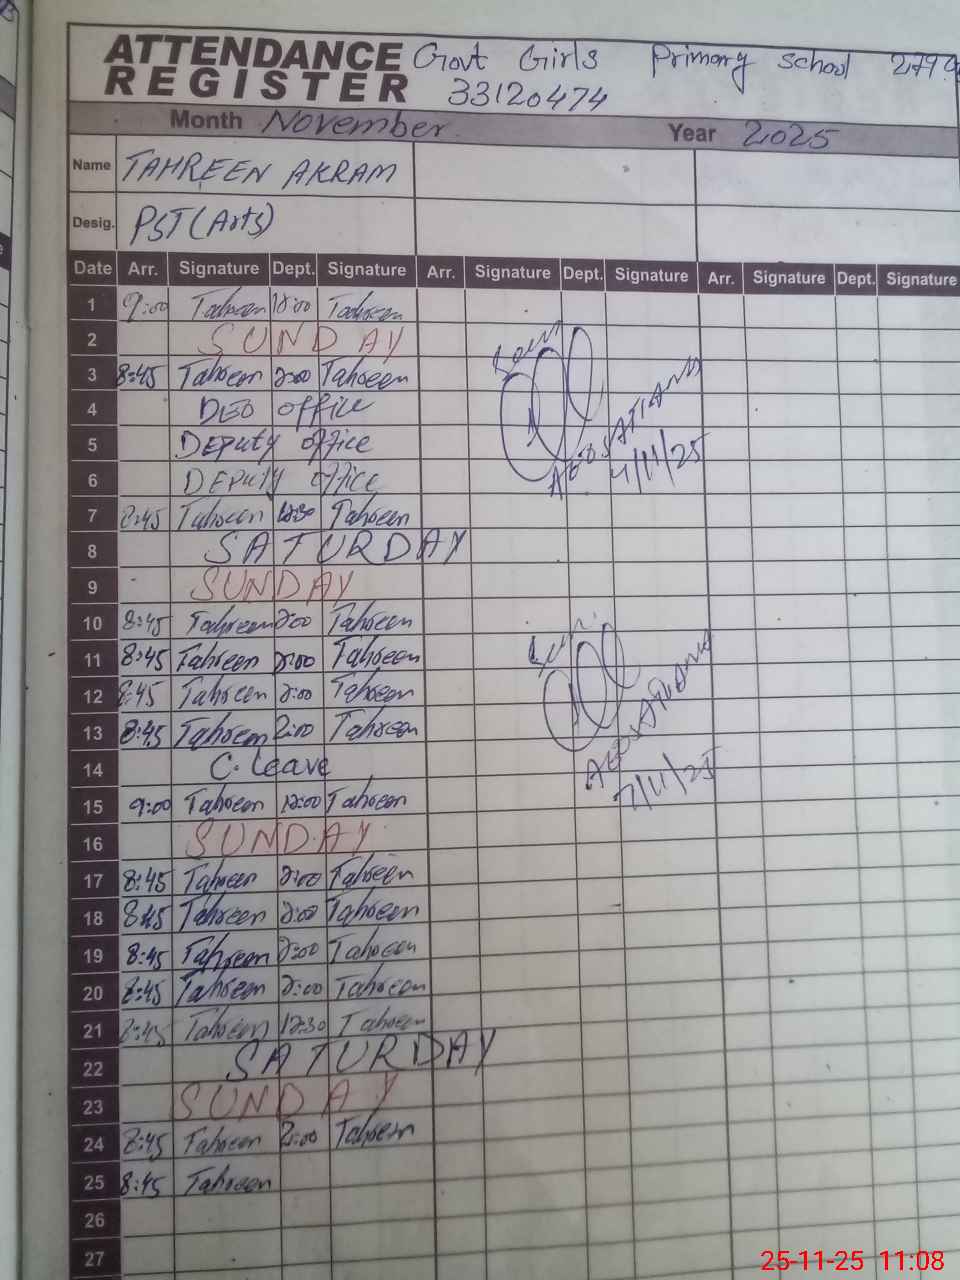 ATTENDANCE REGISTER
Govt Girls Primary school 279
33120474
Month November Year 2025
Name TAHREEN AKRAM
Desig. PST (Arts)
Date Arr. Signature Dept. Signature Arr. Signature Dept. Signature Arr. Signature Dept. Signature
1 9:00 Tahreen 12:00 Tahreen
2 SUNDAY
3 8:45 Tahreen 2:00 Tahreen
4 DEO office
5 Deputy office
6 DEPuty office
7 8:45 Tahreen 12:30 Tahreen
8 SATURDAY
9 SUNDAY
10 8:45 Tahreen 2:00 Tahreen
11 8:45 Tahreen 2:00 Tahreen
12 8:45 Tahreen 2:00 Tahreen
13 8:45 Tahreen 2:00 Tahreen
14 C. leave
15 9:00 Tahreen 12:00 Tahreen
16 SUNDAY
17 8:45 Tahreen 2:00 Tahreen
18 8:45 Tahreen 2:00 Tahreen
19 8:45 Tahreen 2:00 Tahreen
20 8:45 Tahreen 2:00 Tahreen
21 8:45 Tahreen 12:30 Tahreen
22 SATURDAY
23 SUNDAY
24 8:45 Tahreen 2:00 Tahreen
25 8:45 Tahreen
26
27
Seen
AEO SATIANA
4/11/25
Seen
AEO SATIANA
7/11/25
25-11-25 11:08